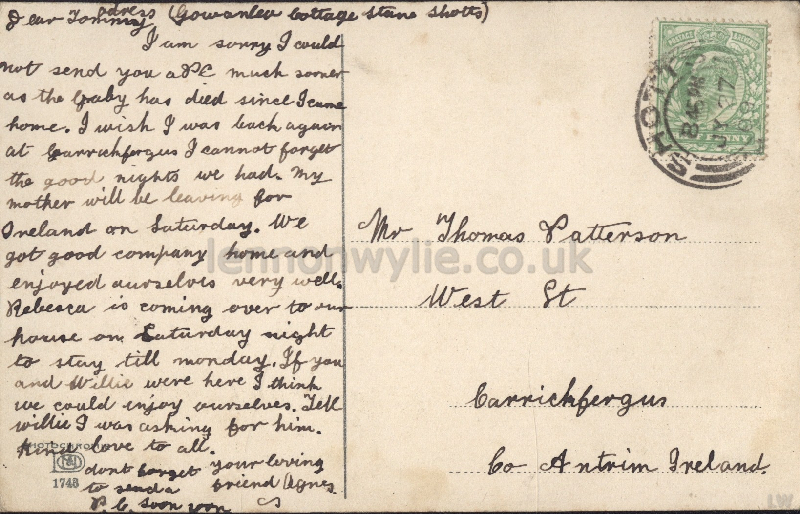 dress (Gowanlea Cottage Stane Shotts)
Dear Tommy
I am sorry I could
not send you a PC much sooner
as the Baby has died since I came
home. I wish I was back again
at Carrickfergus I cannot forget
the good nights we had. My
mother will be leaving for
Ireland on Saturday. We
got good company home and
enjoyed ourselves very well.
Rebesca is coming over to our
house on Saturday night
to stay till monday. If you
and Willie were here I think
we could enjoy ourselves. Tell
willie I was asking for him.
Kind love to all.
dont forget
to send a
P.C. soon soon
your loving
friend Agnes
PHOTOCHROM
1743
SHOTTS
8 45 PM
JY 27
PENNY
Mr Thomas Patterson
West St
Carrickfergus
Co Antrim Ireland.
lennonwylie.co.uk
LW